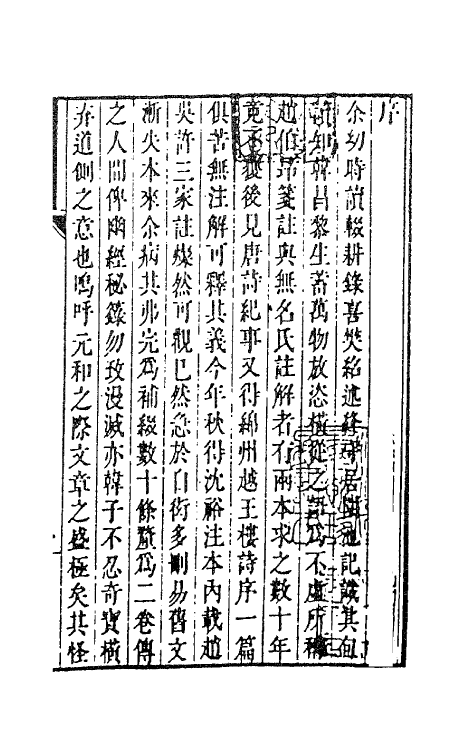 序
余幼時讀輟耕錄喜樊紹述絳守居園池記識其句
讀知韓昌黎生蓄萬物放恣橫從之為不虛所稱
趙伯昂箋註與無名氏註解者有兩本求之數十年
竟不獲後見唐詩紀事又得綿州越王樓詩序一篇
俱苦無注解可釋其義今年秋得沈裕注本內載趙
吳許三家註燦然可觀已然急於自衒多刪易舊文
漸失本來余病其弗完為補綴數十條釐為二卷傳
之人間俾幽經秘籙勿致沒滅亦韓子不忍奇寶橫
弃道側之意也嗚呼元和之際文章之盛極矣其怪